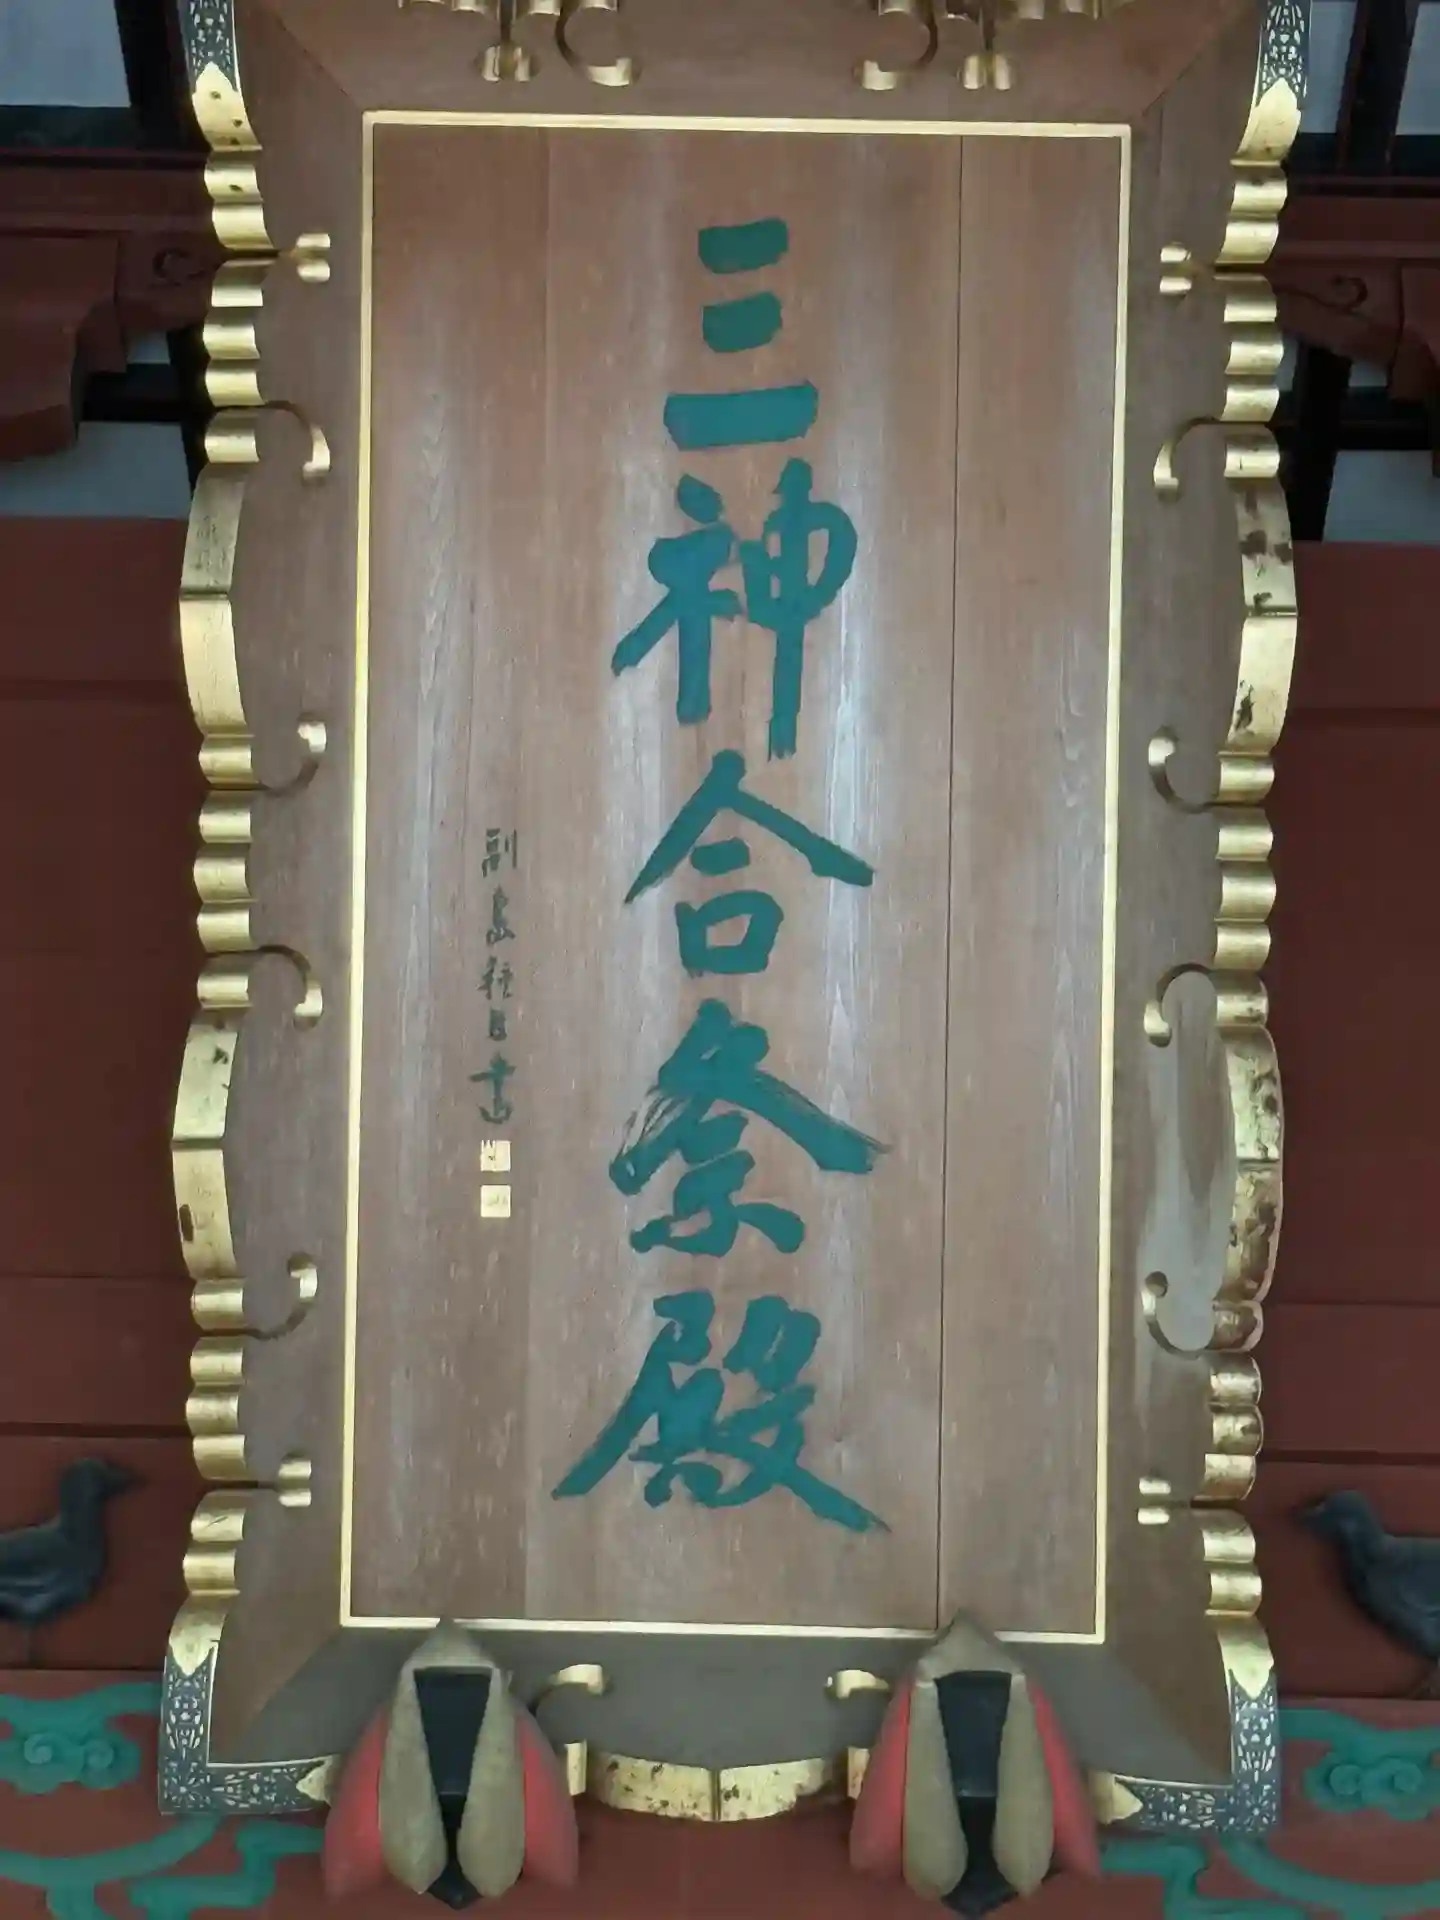 三神合祭殿
副島種臣書